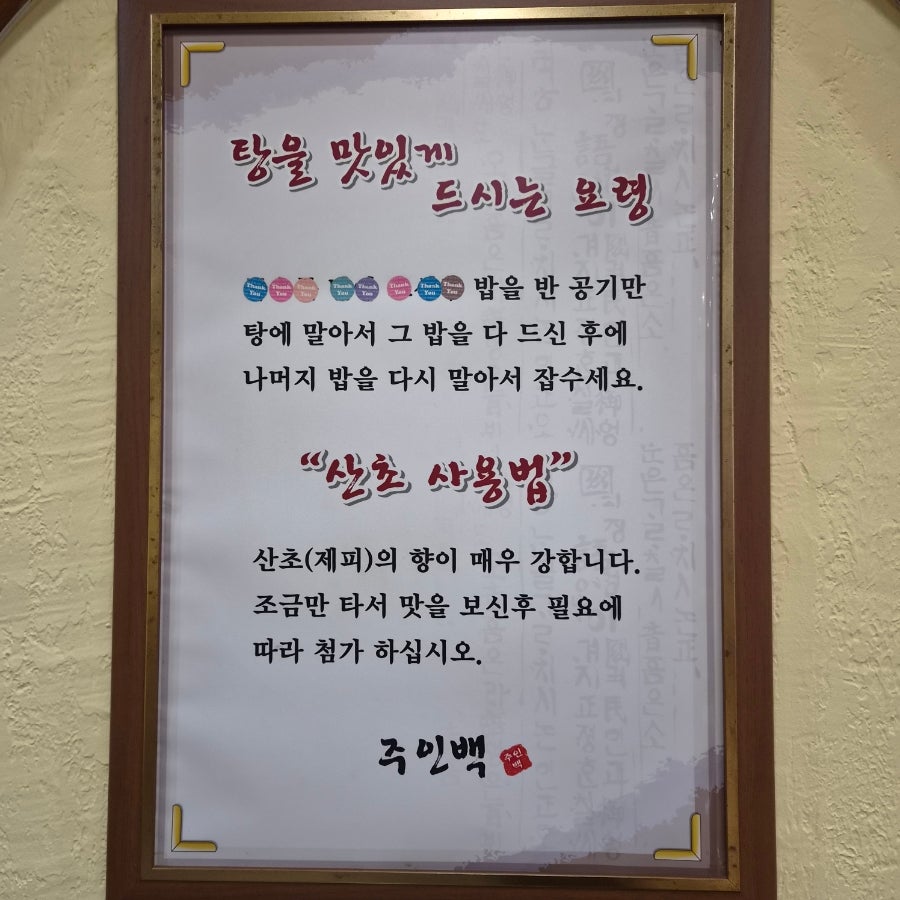 탕을 맛있게
드시는 요령
Thank You Thank You Thank You Thank You Thank You Thank You Thank You Thank You 밥을 반 공기만
탕에 말아서 그 밥을 다 드신 후에
나머지 밥을 다시 말아서 잡수세요.
"산초 사용법"
산초(제피)의 향이 매우 강합니다.
조금만 타서 맛을 보신후 필요에
따라 첨가 하십시오.
주인백
주인
백